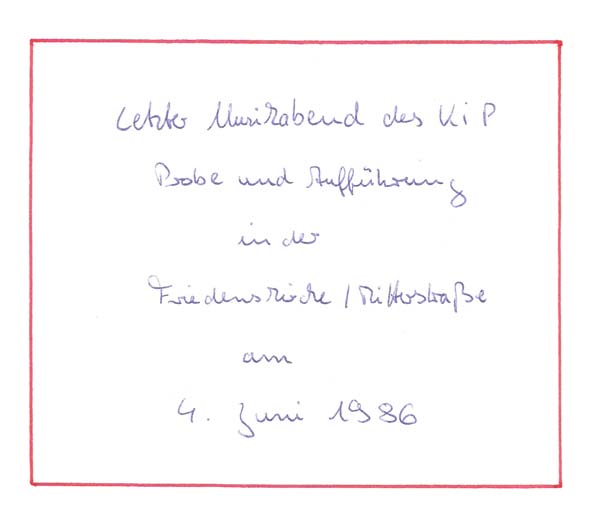 Letzter Musikabend des KiP
Probe und Aufführung
in der
Friedenskirche / Ritterstraße
am
4. Juni 1986